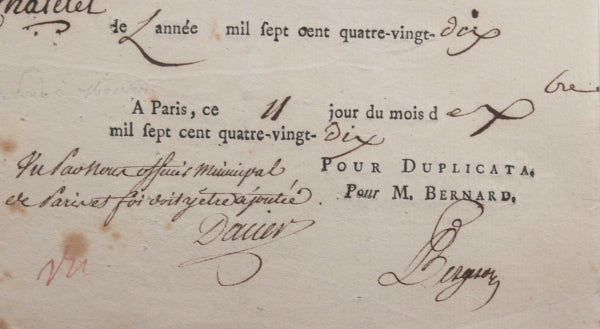 Chatelet
de L'année mil sept cent quatre-vingt-dix
A Paris, ce 11 jour du mois d e Xbre
mil sept cent quatre-vingt-dix
POUR DUPLICATA.
Pour M. BERNARD.
Vu Par nous officier municipal
de Paris et foi doit y être ajoutée.
Dacier
Vu